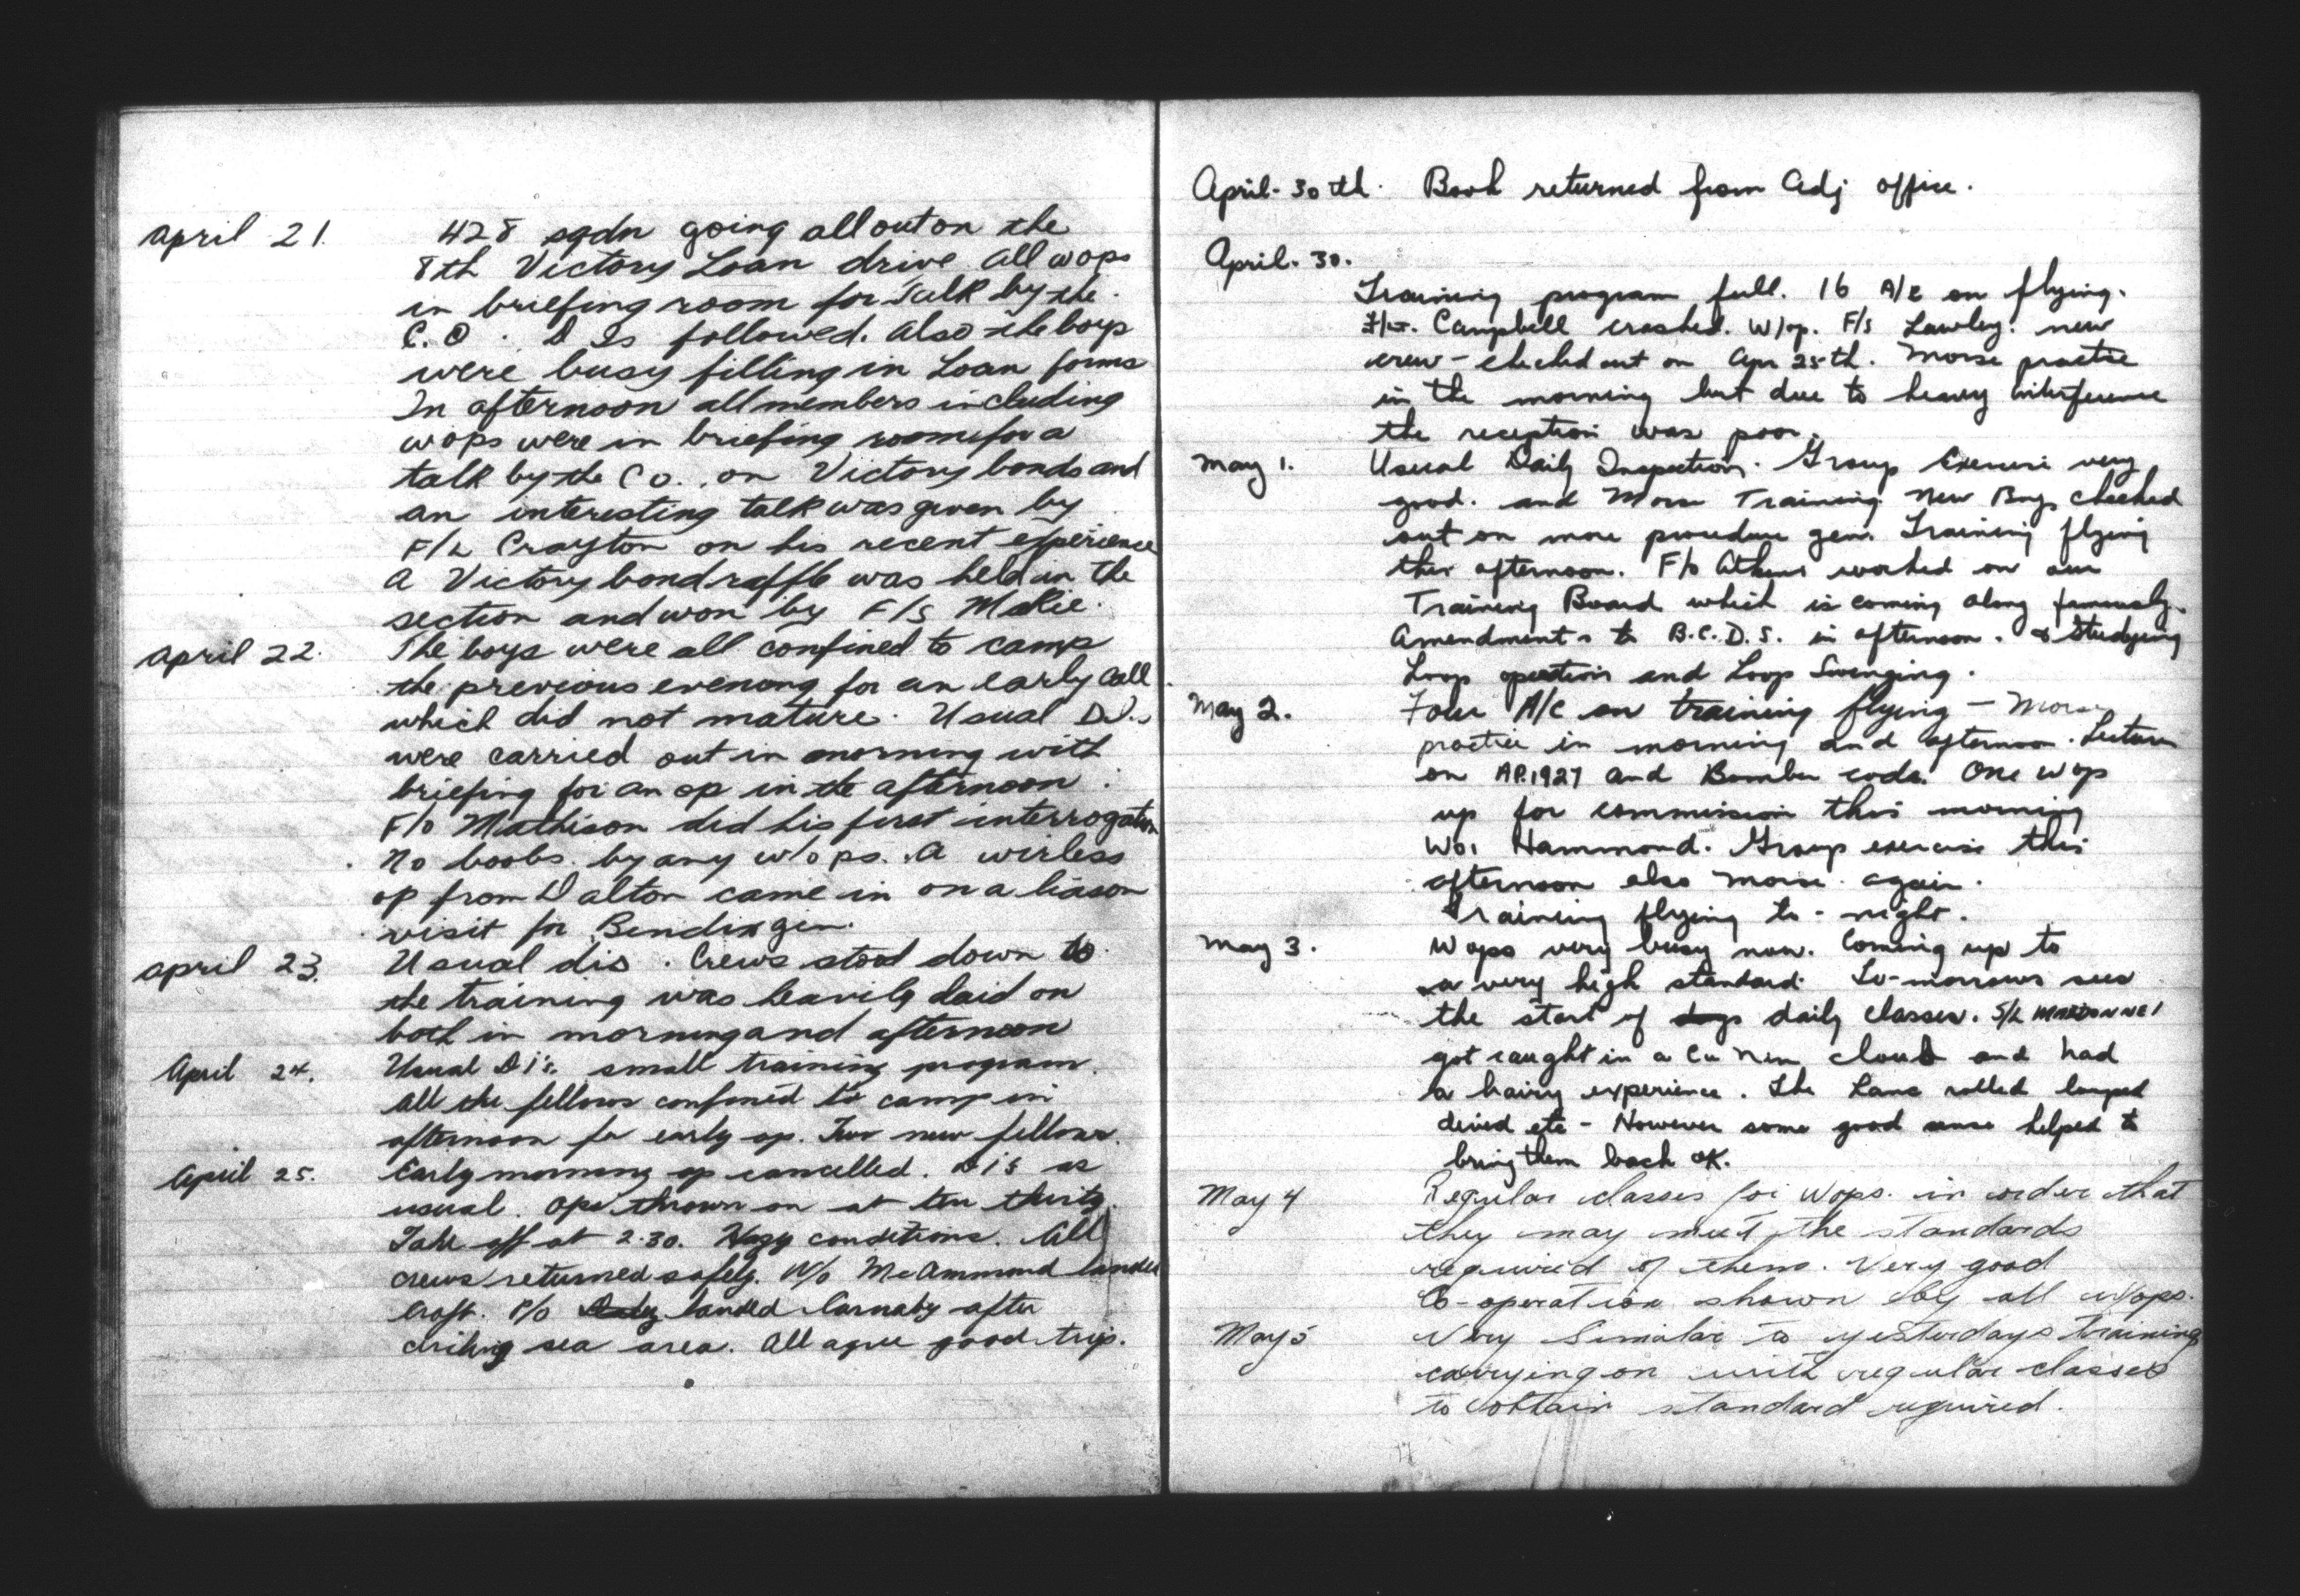 April 21. 428 sqdn going all out on the
8th Victory Loan drive. All wops
in briefing room for talk by the
C.O. D Is followed. Also the boys
were busy filling in Loan forms
In afternoon all members including
wops were in briefing room for a
talk by the Co., on Victory bonds and
an interesting talk was given by
F/L Crayton on his recent experience
A Victory bond raffle was held in the
section and won by F/S
April 22. The boys were all confined to camp
the previous evenong for an early call
which did not mature. Usual D.I.s
were carried out in morning with
briefing for an op in the afternoon.
F/O Mathison did his first interrogation
No boobs by any w/ops. A wirless
op from Dalton came in on a liason
visit for Bendix gen.
April 23. Usual dis. Crews stood down so
the training was heavily laid on
both in morning and afternoon
April 24. Usual DI's. small training program.
All the fellows confined to camp in
afternoon for early op. Two new fellows.
April 25. Early morning op cancelled. DI's as
usual. Ops thrown on at ten thirty.
Take off at 2.30. conditions. All
crews returned safely. W/o McAmmond landed
Croft. P/O landed Carnaby after
sea area. All agree good trip.
April 30th. Book returned from Adj office.
April. 30.
Training program full. 16 A/C on flying.
Campbell crashed. W/op. F/S Lawley. new
crew - checked out on Apr 25th. Morse practice
in the morning but due to heavy interference
the reception was poor.
May 1. Usual Daily Inspection. Group Exercise very
good. and Morse Training. New Boys checked
out on more procedure gen. Training flying
this afternoon. F/O worked on our
Training Board which is coming along famously.
Amendments to B.C.D.S. in afternoon. & Studying
Loop operation and Loop Swinging.
May 2. Four A/C on training flying - Morse
practice in morning and afternoon. Lecture
on AP.1927 and Bomber code. One wop
up for commission this morning
WO1 Hammond. Group exercise this
afternoon also morse again.
Training flying to-night.
May 3. Wops very busy now. Coming up to
a very high standard. To-morrows sees
the start of daily classes. S/L
got caught in a Cu Nim cloud and had
a hairy experience. The Lanc rolled looped
dived etc - However some good sense helped to
bring them back OK.
May 4 Regular classes for Wops. in order that
they may meet the standards
required of them. Very good
Co-operation shown by all w/ops.
May 5 Very Similar to yesterdays training
carrying on with regular classes
to obtain standard required.